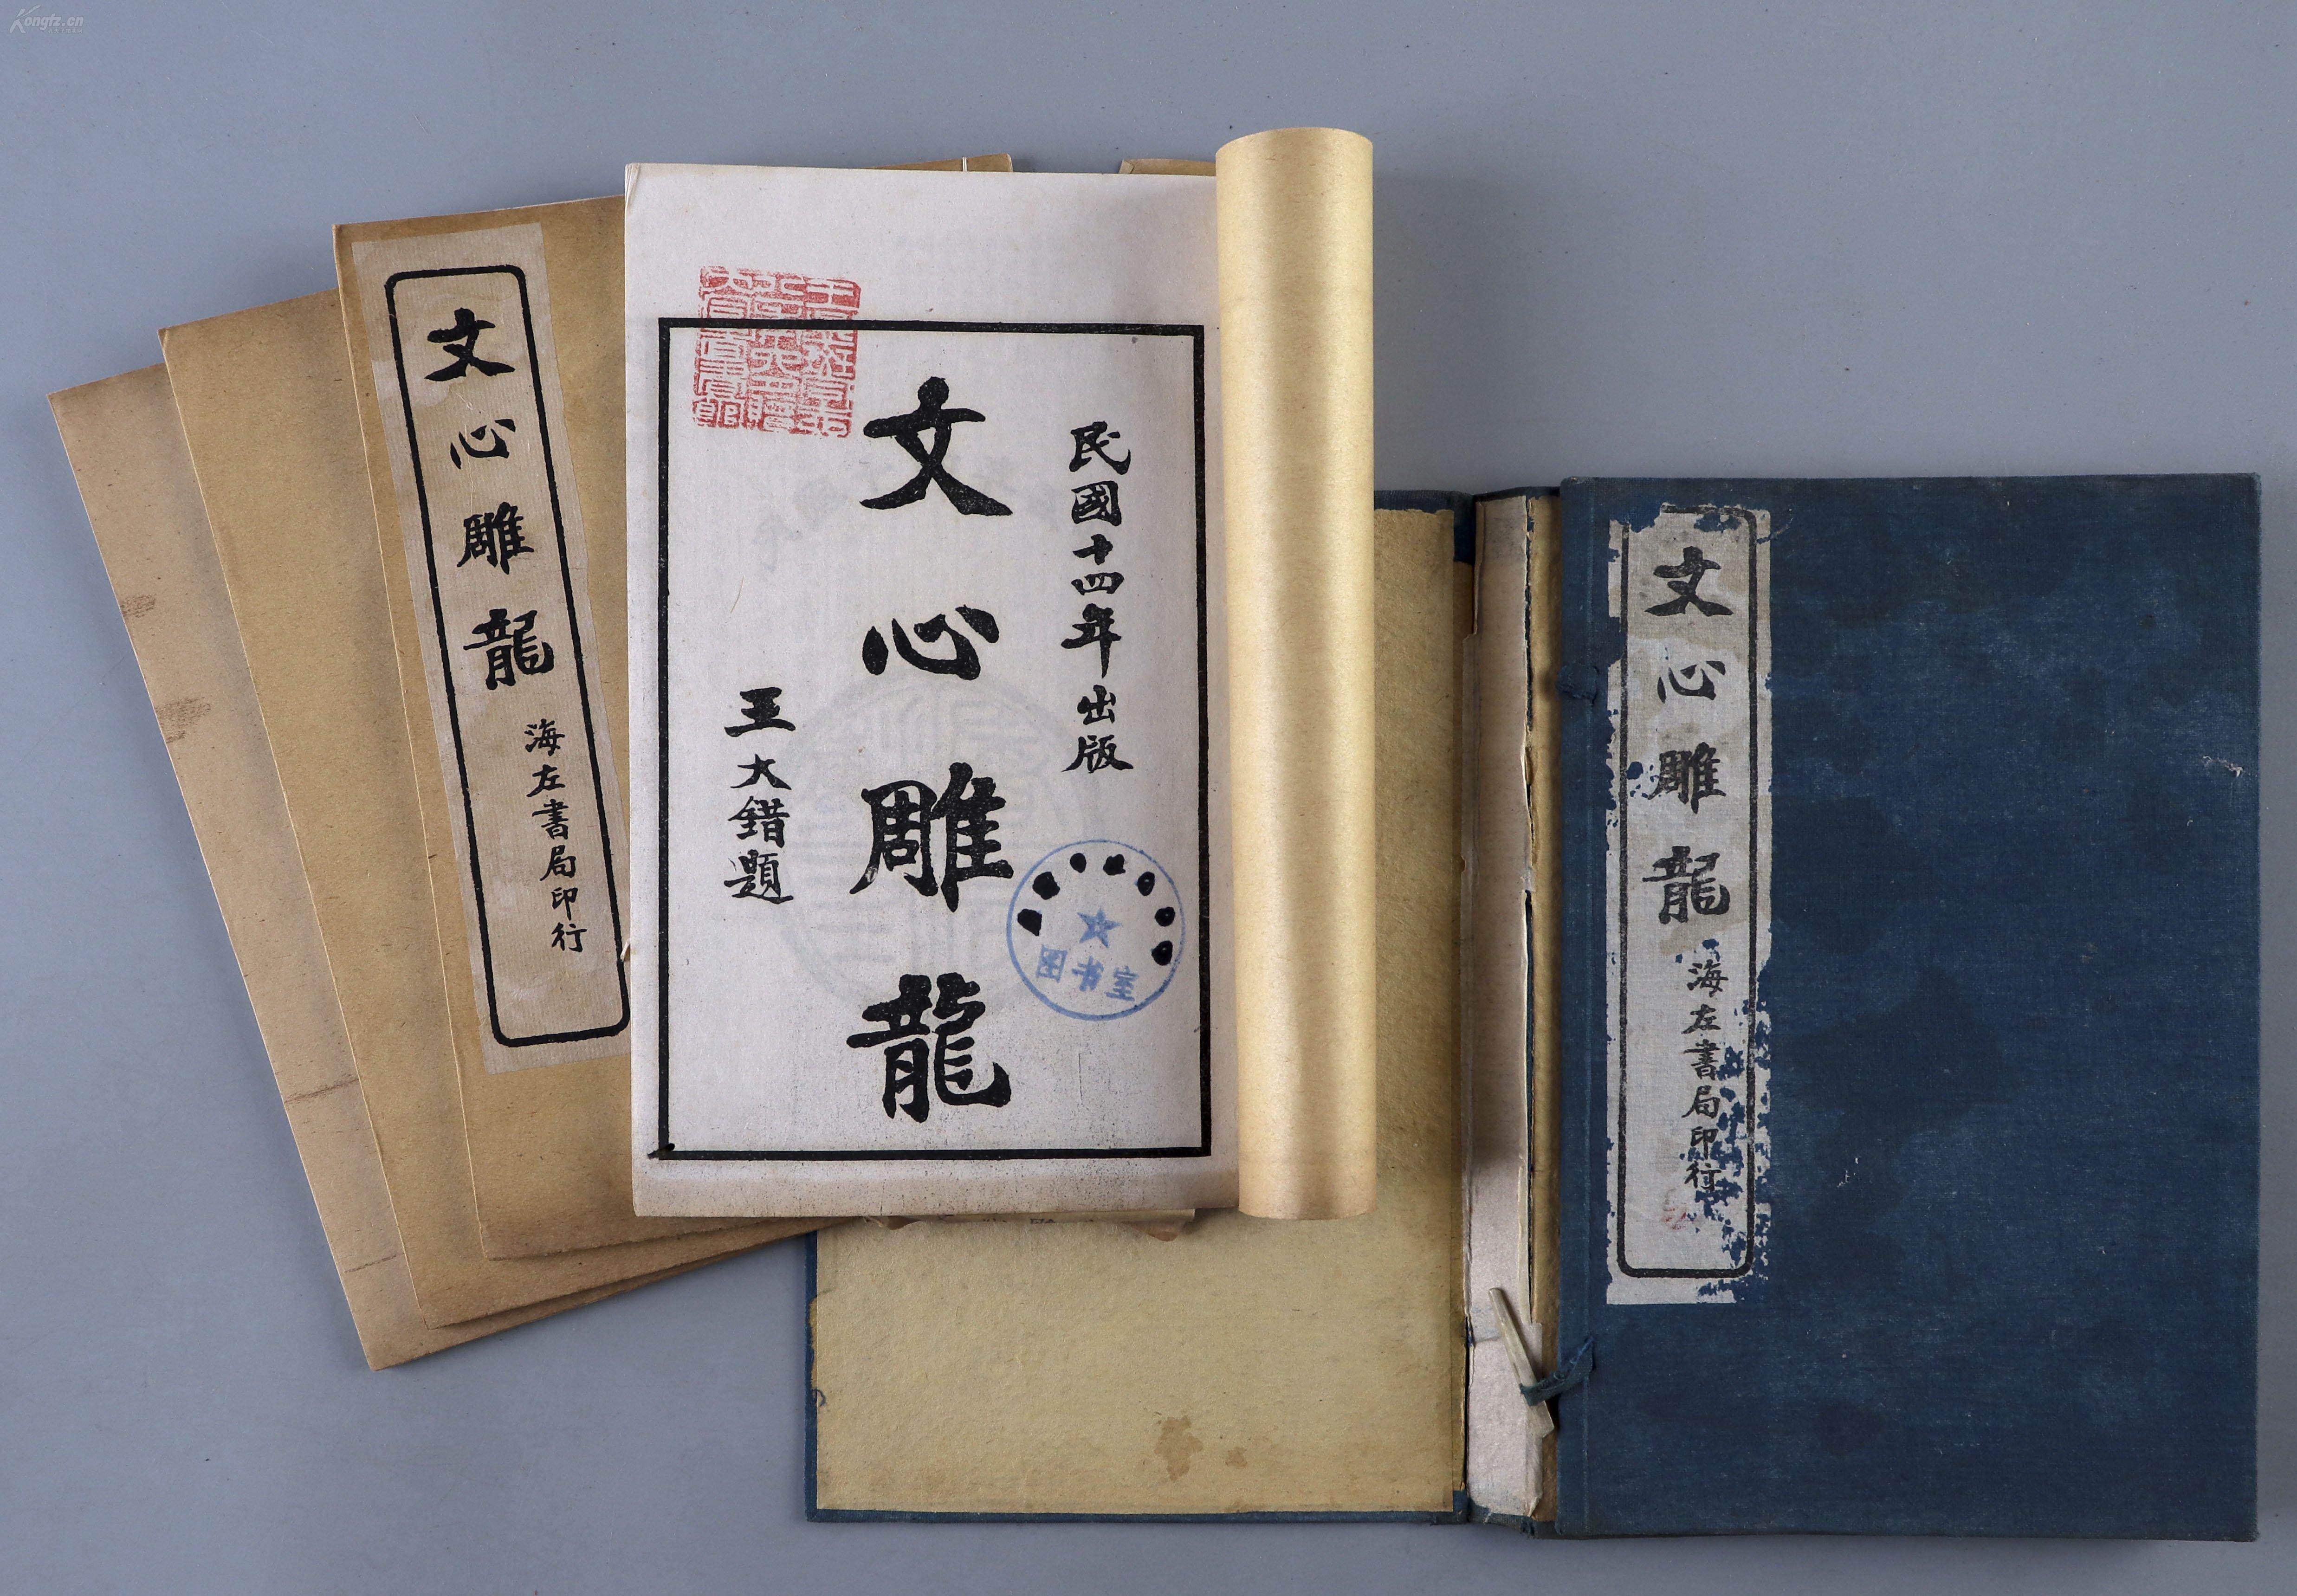 Kongfz.cn
文心雕龍
海左書局印行
民國十四年出版
文心雕龍
王大錯題
图书室
文心雕龍
海左書局印行